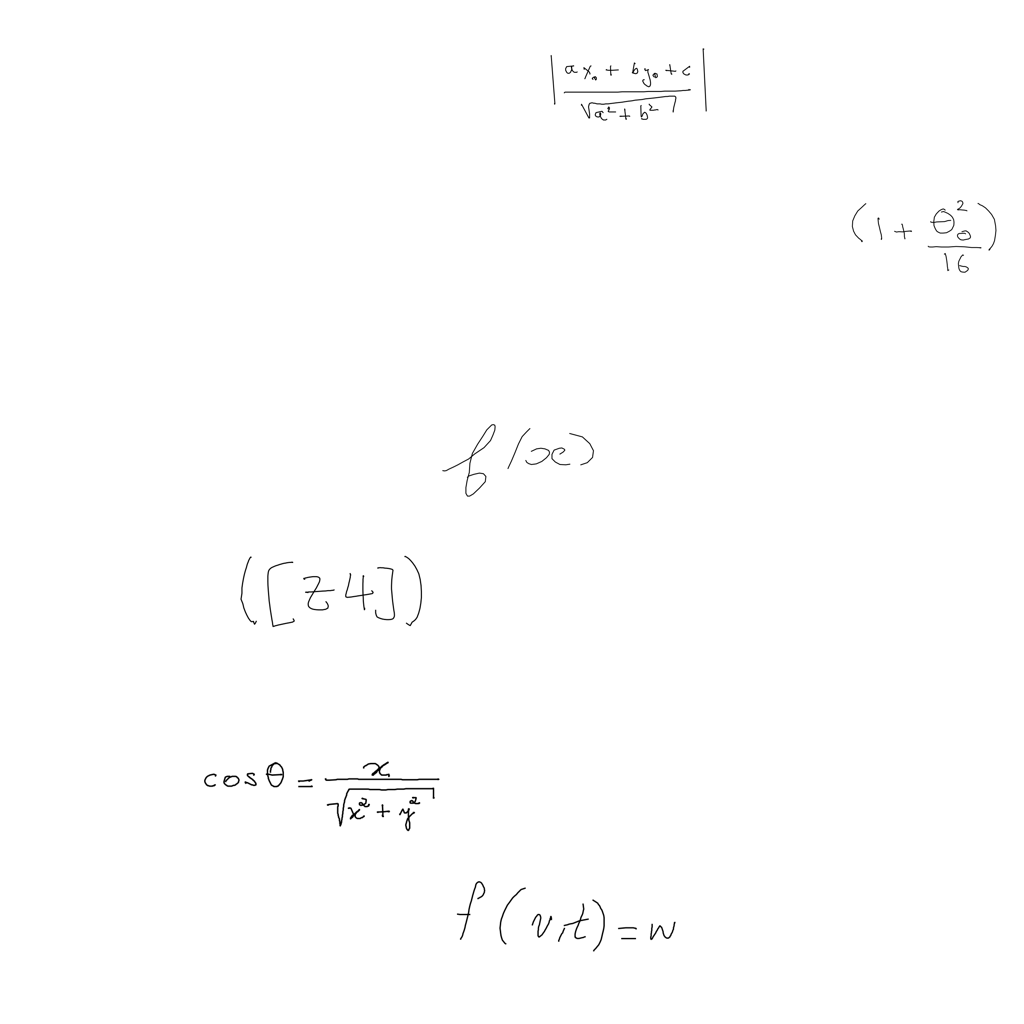 \left| \frac{ax_0 + by_0 + c}{\sqrt{a^2 + b^2}} \right|
(1 + \frac{\theta_0^2}{16})
f(x)
([z4])
\cos\theta = \frac{x}{\sqrt{x^2 + y^2}}
f(v,t) = w